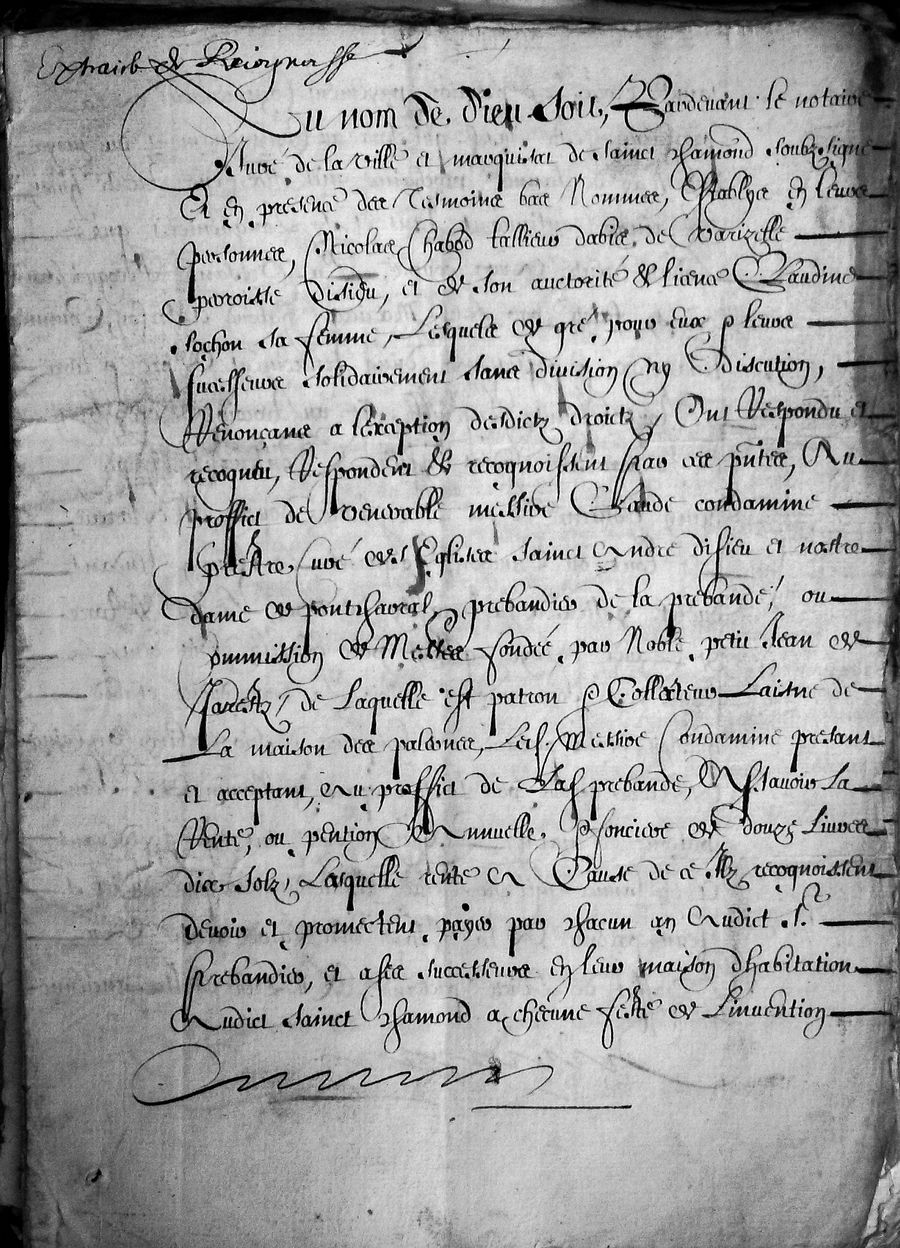 Extraict de Recognoisse
Au nom de dieu soit, Pardevant le notaire
Juré de la ville et marquisat de sainct chamond soubzsigne
Et en presence des Tesmoins bas Nommes, Establys en leurs
personnes, Nicolas Chabod tallieur dabis de Varizelle
paroisse disieu, et de son auctorité & licence Claudine
lochon sa femme, Lesquels de gré pour eux & leurs
successeurs solidairement sans division ny Discution,
Renonçans a lexception desdictz droictz, Ont Respondu et
recogneu, Respondent & recognoissent par ces pntes, Au
proffict de venerable messire Claude condamine
prestre, Curé des Eglises sainct Andre disieu et nostre
dame de pont chavral, prebandier de la prebande, ou
Commission de Messes fondée par Noble petit Jean de
Jarestz, de laquelle est patron & Collateur Laisne de
La maison des palernes, Led. Messire Condamine presant
et acceptant, Au proffict de Lad prebande, Assavoir La
Rente, ou pention Annuelle, & fonciere de douze Livres
dix solz, Lasquelle rente A Cause de ce Ilz recognoissent
devoir et promectent payer par chacun an Audict sr
Prebandier, et a ses successeurs en leur maison dhabitation
Audict sainct chamond a chacune feste de Linvention